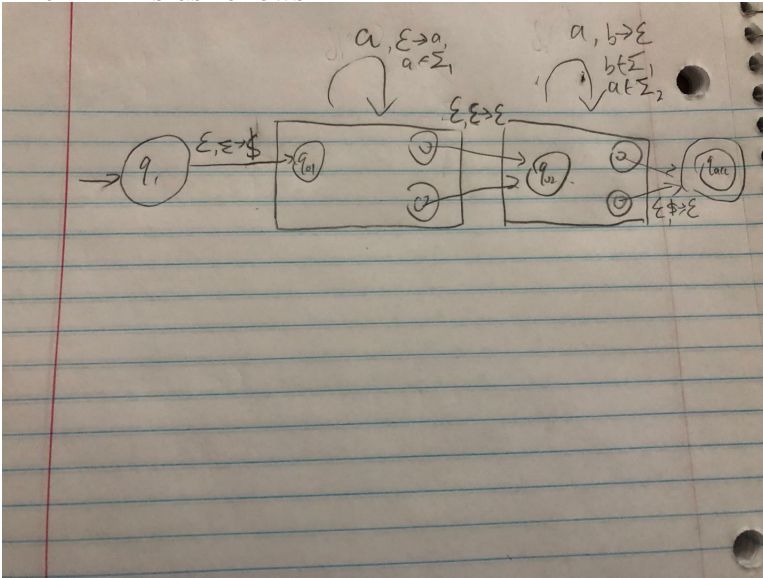 a, ε→a,
a∈Σ₁
a, b→ε
b∈Σ₁
a∈Σ₂
ε,ε→ε
ε,ε→$
q₁
q₀₁
q₀₂
qacc
ε,$→ε